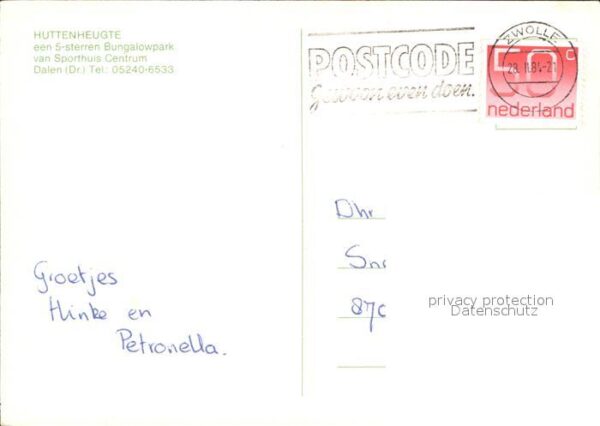 HUTTENHEUGTE
een 5-sterren Bungalowpark
van Sporthuis Centrum
Dalen (Dr.) Tel.: 05240-6533
POSTCODE
gewoon even doen.
ZWOLLE
50 c
nederland
Dhr
Snr
87c
privacy protection
Datenschutz
Groetjes
Hinke en
Petronella.